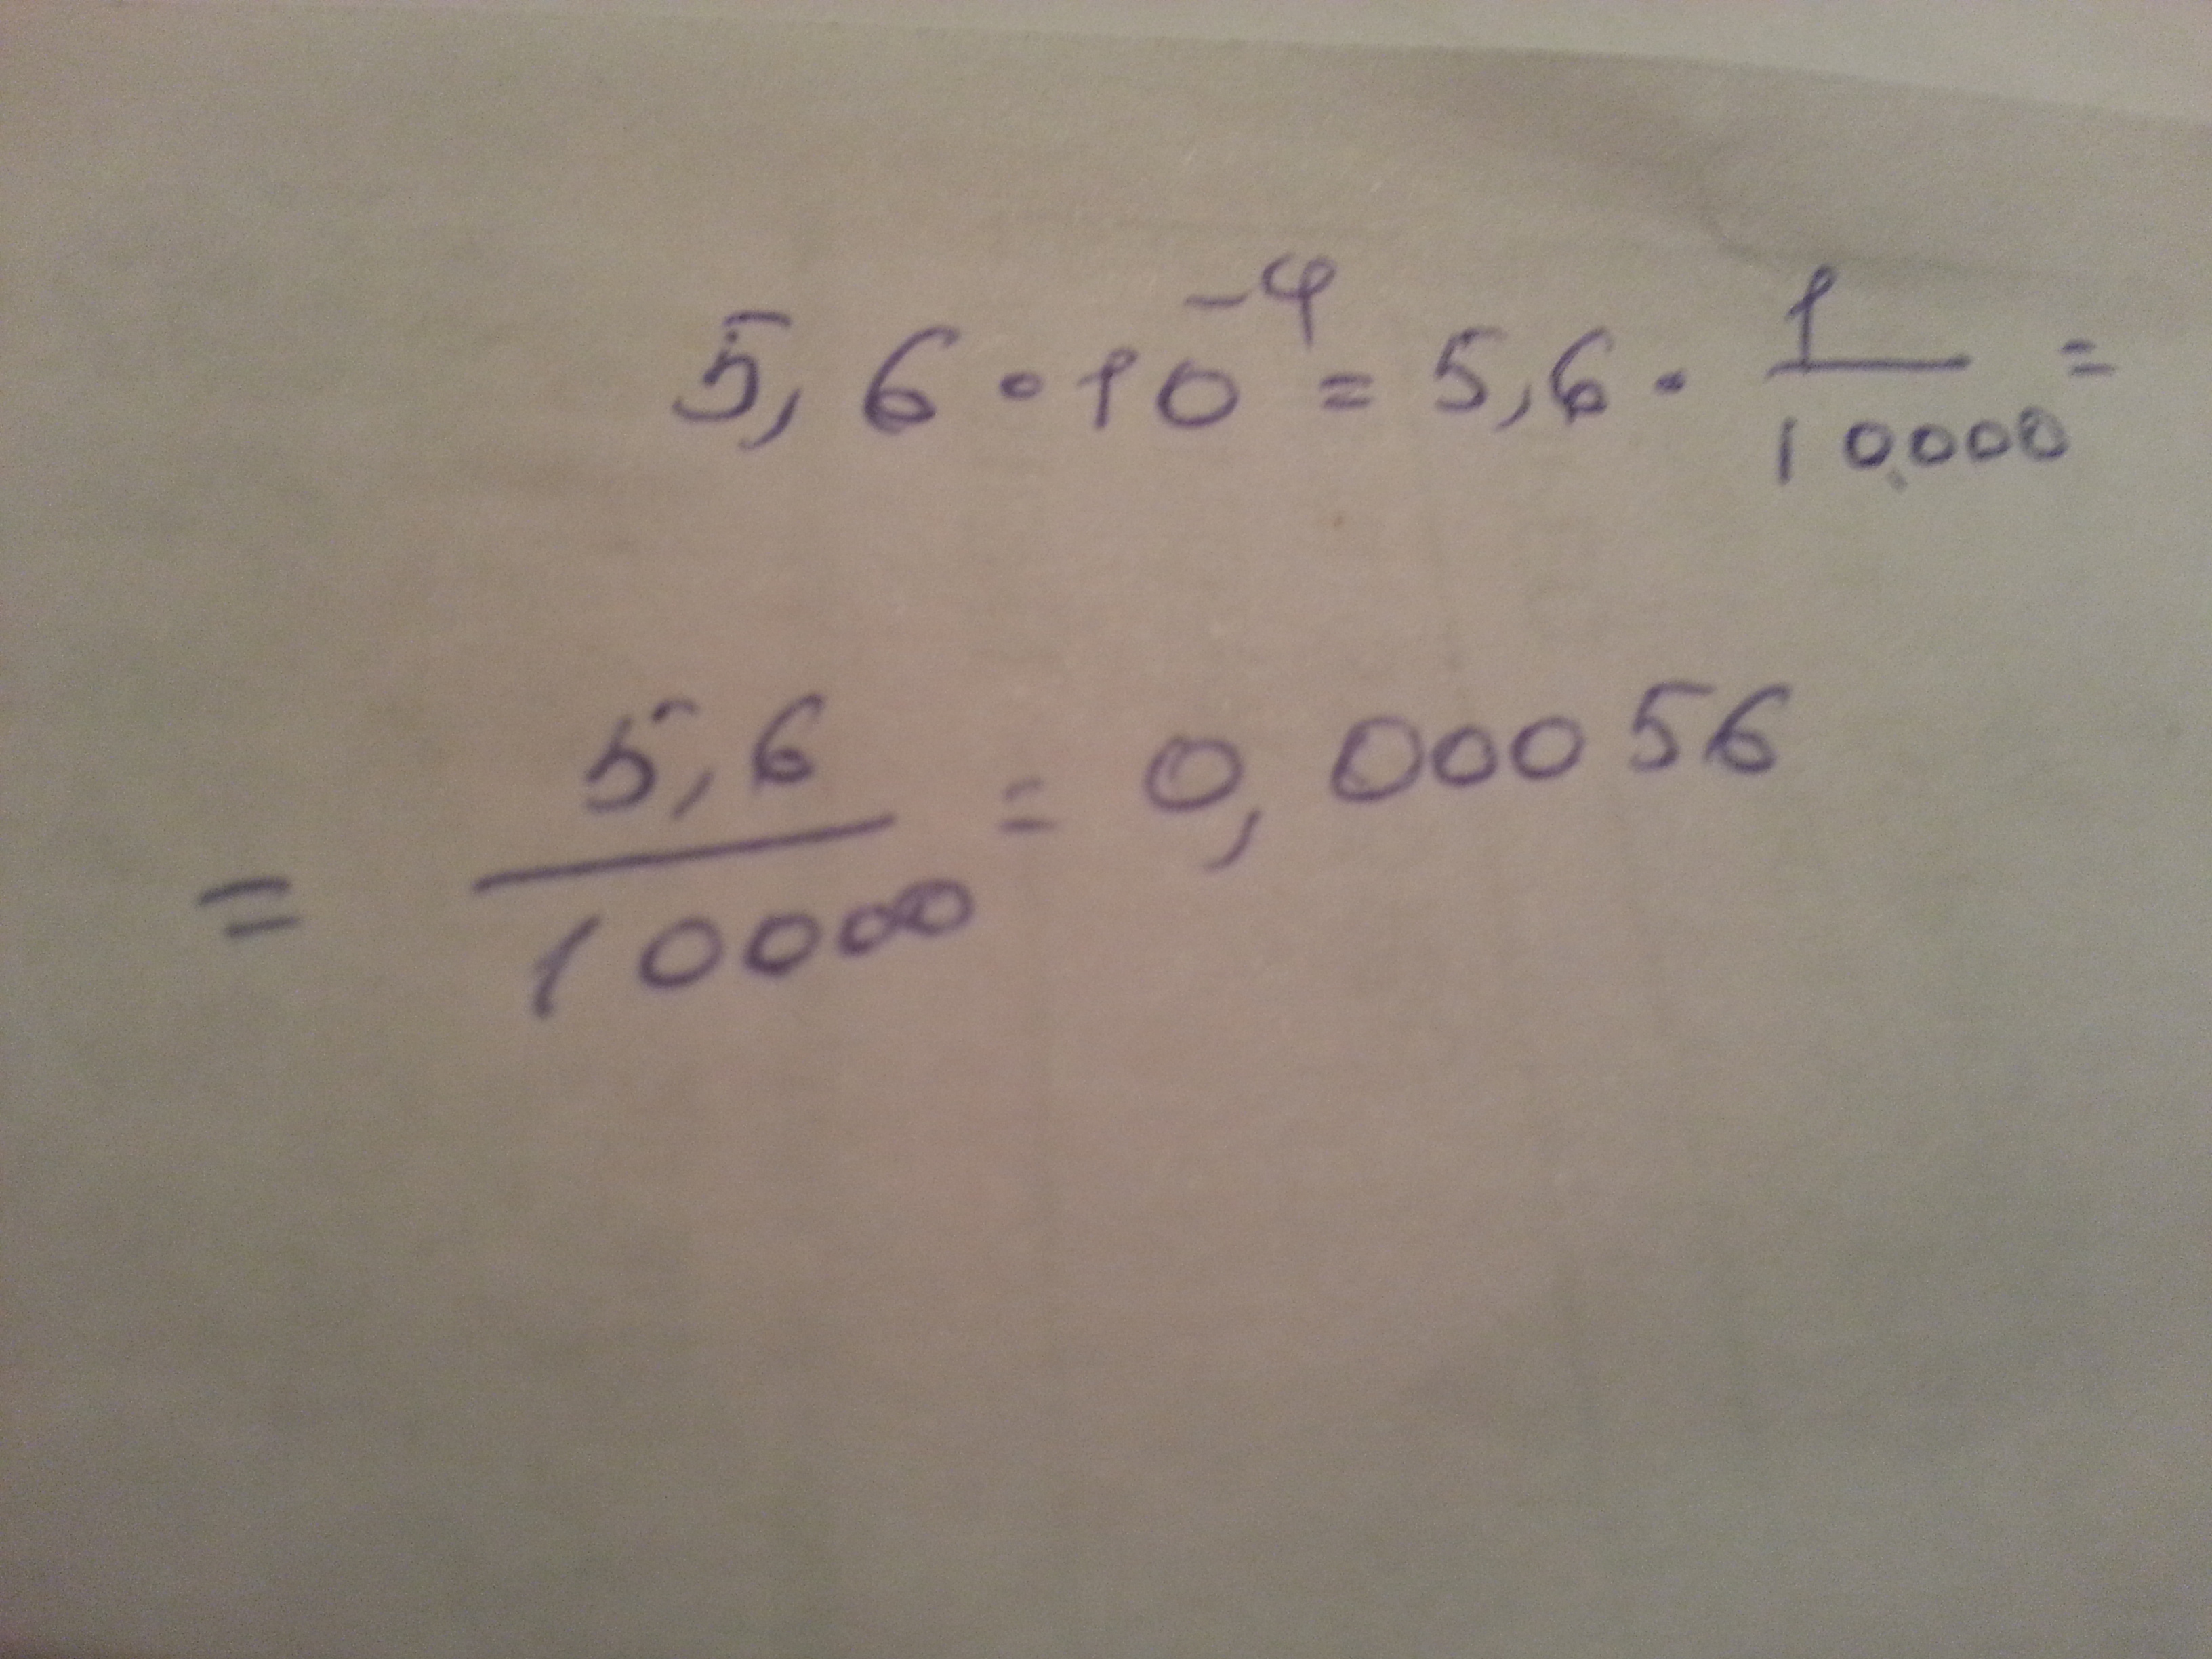 5,6 · 10⁻⁴ = 5,6 · 1/10000 =
= 5,6/10000 = 0,00056